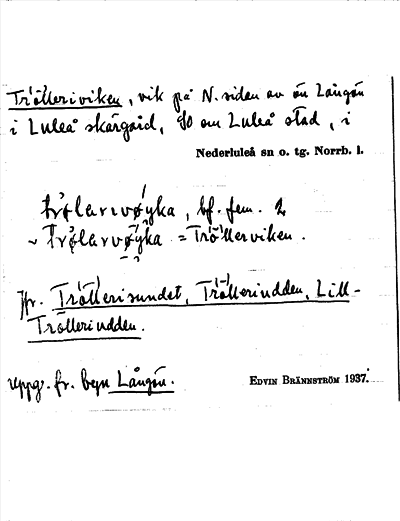 Trötteriviken, vik på N. sidan av ön Långön
i Luleå skärgård, SO om Luleå stad, i
Nederluleå sn o. tg. Norrb. l.
bf. fem. 2
~ = Trötterviken.
Jfr. Trötterisundet, Trötteriudden, Lill-
Trötteriudden.
Uppg. fr. byn Långön.
EDVIN BRÄNNSTRÖM 1937.